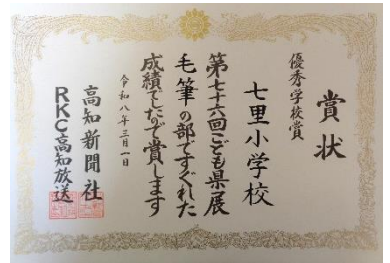 賞状
優秀学校賞
七里小学校
第七十六回こども県展
毛筆の部ですぐれた
成績でしたので賞します
令和八年三月一日
高知新聞社
RKC高知放送